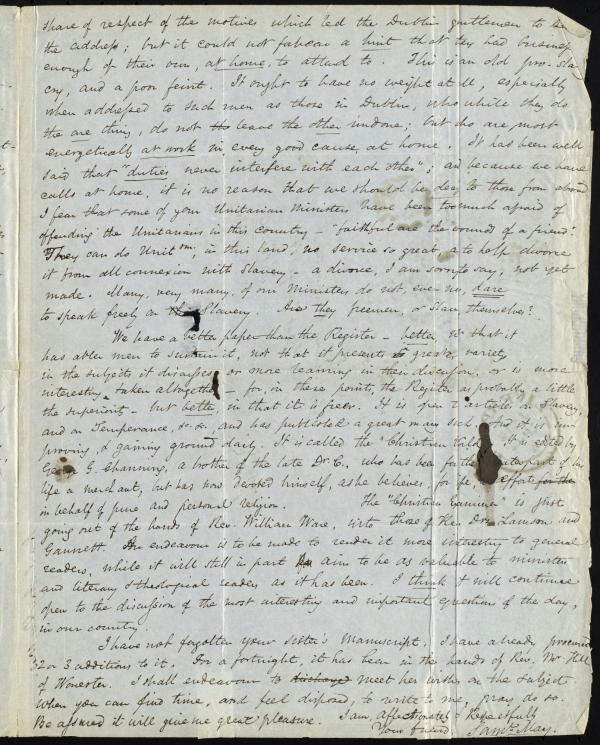 share of respect of the motives which led the Dublin gentlemen to
the address; but it could not forbear a hint that they had business
enough of their own, at home, to attend to. This is an old pro-Slavery
cry, and a poor feint. It ought to have no weight at all, especially
when addressed to such men as those in Dublin, who while they do
the one thing, do not leave the other undone; but who are most
energetically at work in every good cause, at home. It has been well
said that "duties never interfere with each other"; and because we have
calls at home, it is no reason that we should be deaf to those from abroad
I fear that some of your Unitarian Ministers have been too much afraid of
offending the Unitarians in this country – "faithful are the wounds of a friend".
They can do Unitm, in this land, no service so great as to help divorce
it from all connexion with Slavery – a divorce, I am sorry to say, not yet
made. Many, very many of our Ministers do not, even now, dare
to speak freely on Slavery. Are they freemen, or Slaves themselves?
We have a better paper than the Register – better in that it
has abler men to sustain it, not that it presents greater variety
in the subjects it discusses or more learning in their discussion, or is more
interesting, taken altogether – for, in these points, the Register is probably a little
the superior – but better, in that it is freer. It is open to articles on Slavery,
and on Temperance, &c. &c. and has published a great many such. And it is im-
proving, & gaining ground daily. It is called the "Christian World". It is edited by
George G. Channing, a brother of the late Dr. C., who has been for the greater part of his
life a merchant, but has now devoted himself, as he believes, for life, to efforts
in behalf of pure and personal religion. The "Christian Examiner" is just
going out of the hands of Rev. William Ware, into those of Rev. Drs. Lamson and
Gannett. An endeavour is to be made to render it more interesting to general
readers, while it will still in part aim to be as valuable to ministers
and literary & theological readers as it has been. I think it will continue
open to the discussion of the most interesting and important questions of the day,
in our country.
I have not forgotten your Sister's Manuscript. I have already procured
2 or 3 additions to it. For a fortnight, it has been in the hands of Rev. Mr. Hill
of Worcester. I shall endeavour to meet her wishes on the subject.
When you can find time, and feel disposed, to write to me, pray do so.
Be assured it will give me great pleasure. I am, affectionately & Respectfully
Your friend Saml. May.